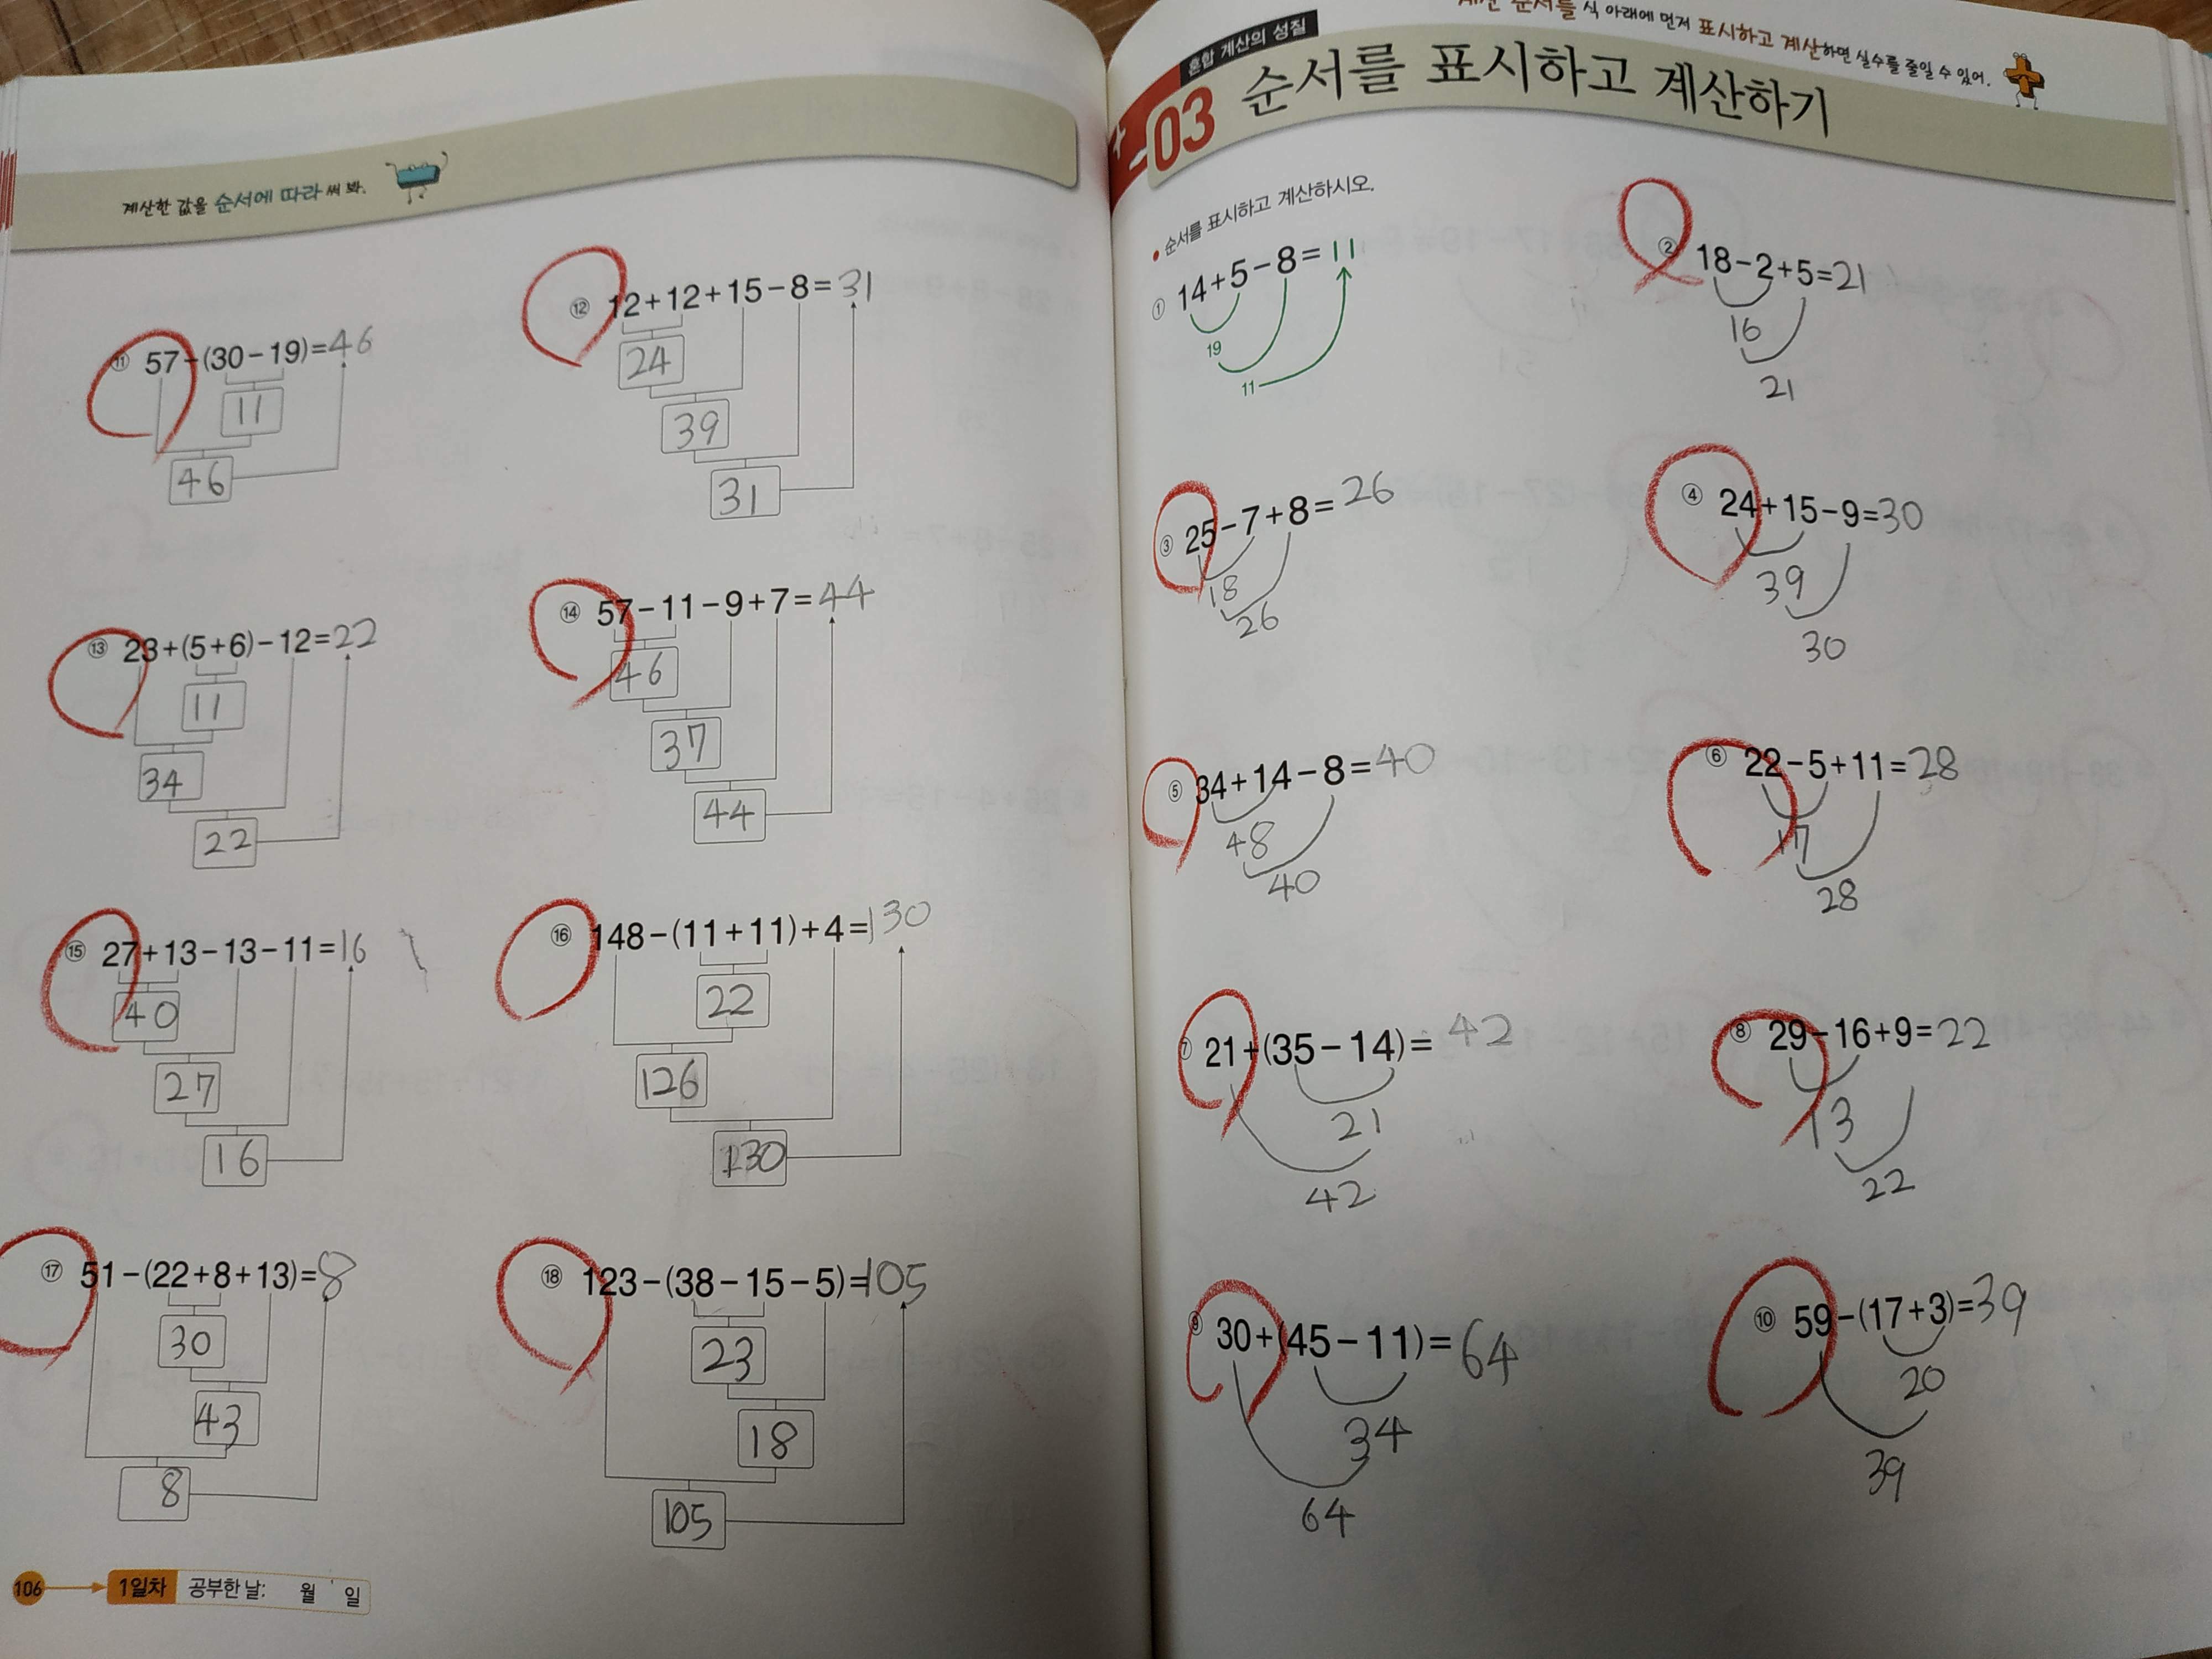 계산한 값을 순서에 따라 써 봐.
⑪ 57-(30-19)=46
11
46
⑫ 12+12+15-8=31
24
39
31
⑬ 23+(5+6)-12=22
11
34
22
⑭ 57-11-9+7=44
46
37
44
⑮ 27+13-13-11=16
40
27
16
⑯ 148-(11+11)+4=130
22
126
130
⑰ 51-(22+8+13)=8
30
43
8
⑱ 123-(38-15-5)=105
23
18
105
106 1일차 공부한 날: 월 일
계산 순서를 식 아래에 먼저 표시하고 계산하면 실수를 줄일 수 있어.
혼합 계산의 성질
03 순서를 표시하고 계산하기
• 순서를 표시하고 계산하시오.
① 14+5-8=11
19
11
② 18-2+5=21
16
21
③ 25-7+8=26
18
26
④ 24+15-9=30
39
30
⑤ 34+14-8=40
48
40
⑥ 22-5+11=28
17
28
⑦ 21+(35-14)=42
21
42
⑧ 29-16+9=22
13
22
⑨ 30+(45-11)=64
34
64
⑩ 59-(17+3)=39
20
39